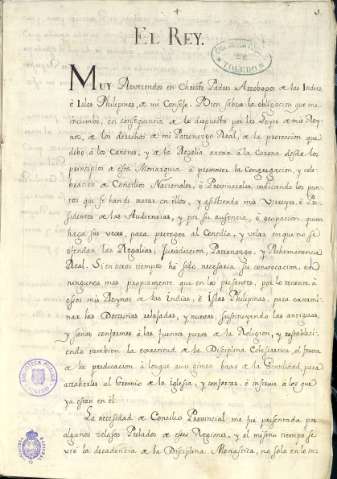 EL REY.
MUY Reverendos en Christo Padres Arzobispos de las Indias
è Islas Philipinas, de mi Consejo. Bien sabeis la obligacion que me
incumbe, en consequencia de lo dispuesto por las Leyes de mis Rey-
nos, de los derechos de mi Patronazgo Real, de la proteccion que
debo à los Canones, y de la Regalia anexa à la Corona desde los
principios de esta Monarquia à promover la Congregacion, y cele-
bracion de Concilios Nacionales, ò Provinciales, indicando los pun-
tos que se han de tratar en ellos, y asistiendo mis Virreyes ò Pre-
sidentes de las Audiencias, y por su ausencia, ù ocupacion quien
haga sus veces, para proteger al Concilio, y velar en que no se
ofendan las Regalias, Jurisdiccion, Patronazgo, y Preheminencia
Real. Si en otros tiempos ha sido necesaria su convocacion, en
ninguno mas propiamente que en los presentes, por lo tocante à
esos mis Reynos de las Indias, è Islas Philipinas, para exterminar
las Doctrinas relajadas, y nuevas, substituyendo las antiguas,
y sanas conformes à las fuentes puras de la Religion, y restable-
ciendo tambien la exactitud de la Disciplina Eclesiastica, el fervor
de la predicacion
atraherlos al Gremio de la Iglesia, y conservar à los que
ya estan en él.
La necesidad de Concilio Provincial me fue presentada por
algunos zelosos Prelados de esas Regiones, y al mismo tiempo se
vió la decadencia de la Disciplina Monastica, no solo en lo mi
TOLEDO